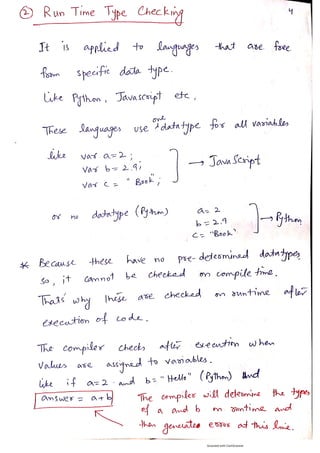 ② Run Time Type Checking
4
It is applied to languages that are free
from specific data type.
Like Python, Javascript etc.
These languages use one datatype for all variables
like var a=2;
var b=2.9;
var c = "Book";
→ JavaScript
or no datatype (Python)
a=2
b=2.9
c="Book"
→ Python
* Because these have no pre-determined datatypes
so, it cannot be checked on compile time.
That's why these are checked on runtime after
execution of code.
The compiler checks after execution when
values are assigned to variables.
like if a=2 and b="Hello" (Python) And
answer = a+b
The compiler will determine the types
of a and b on runtime and
then generates error at this line.
Scanned with CamScanner